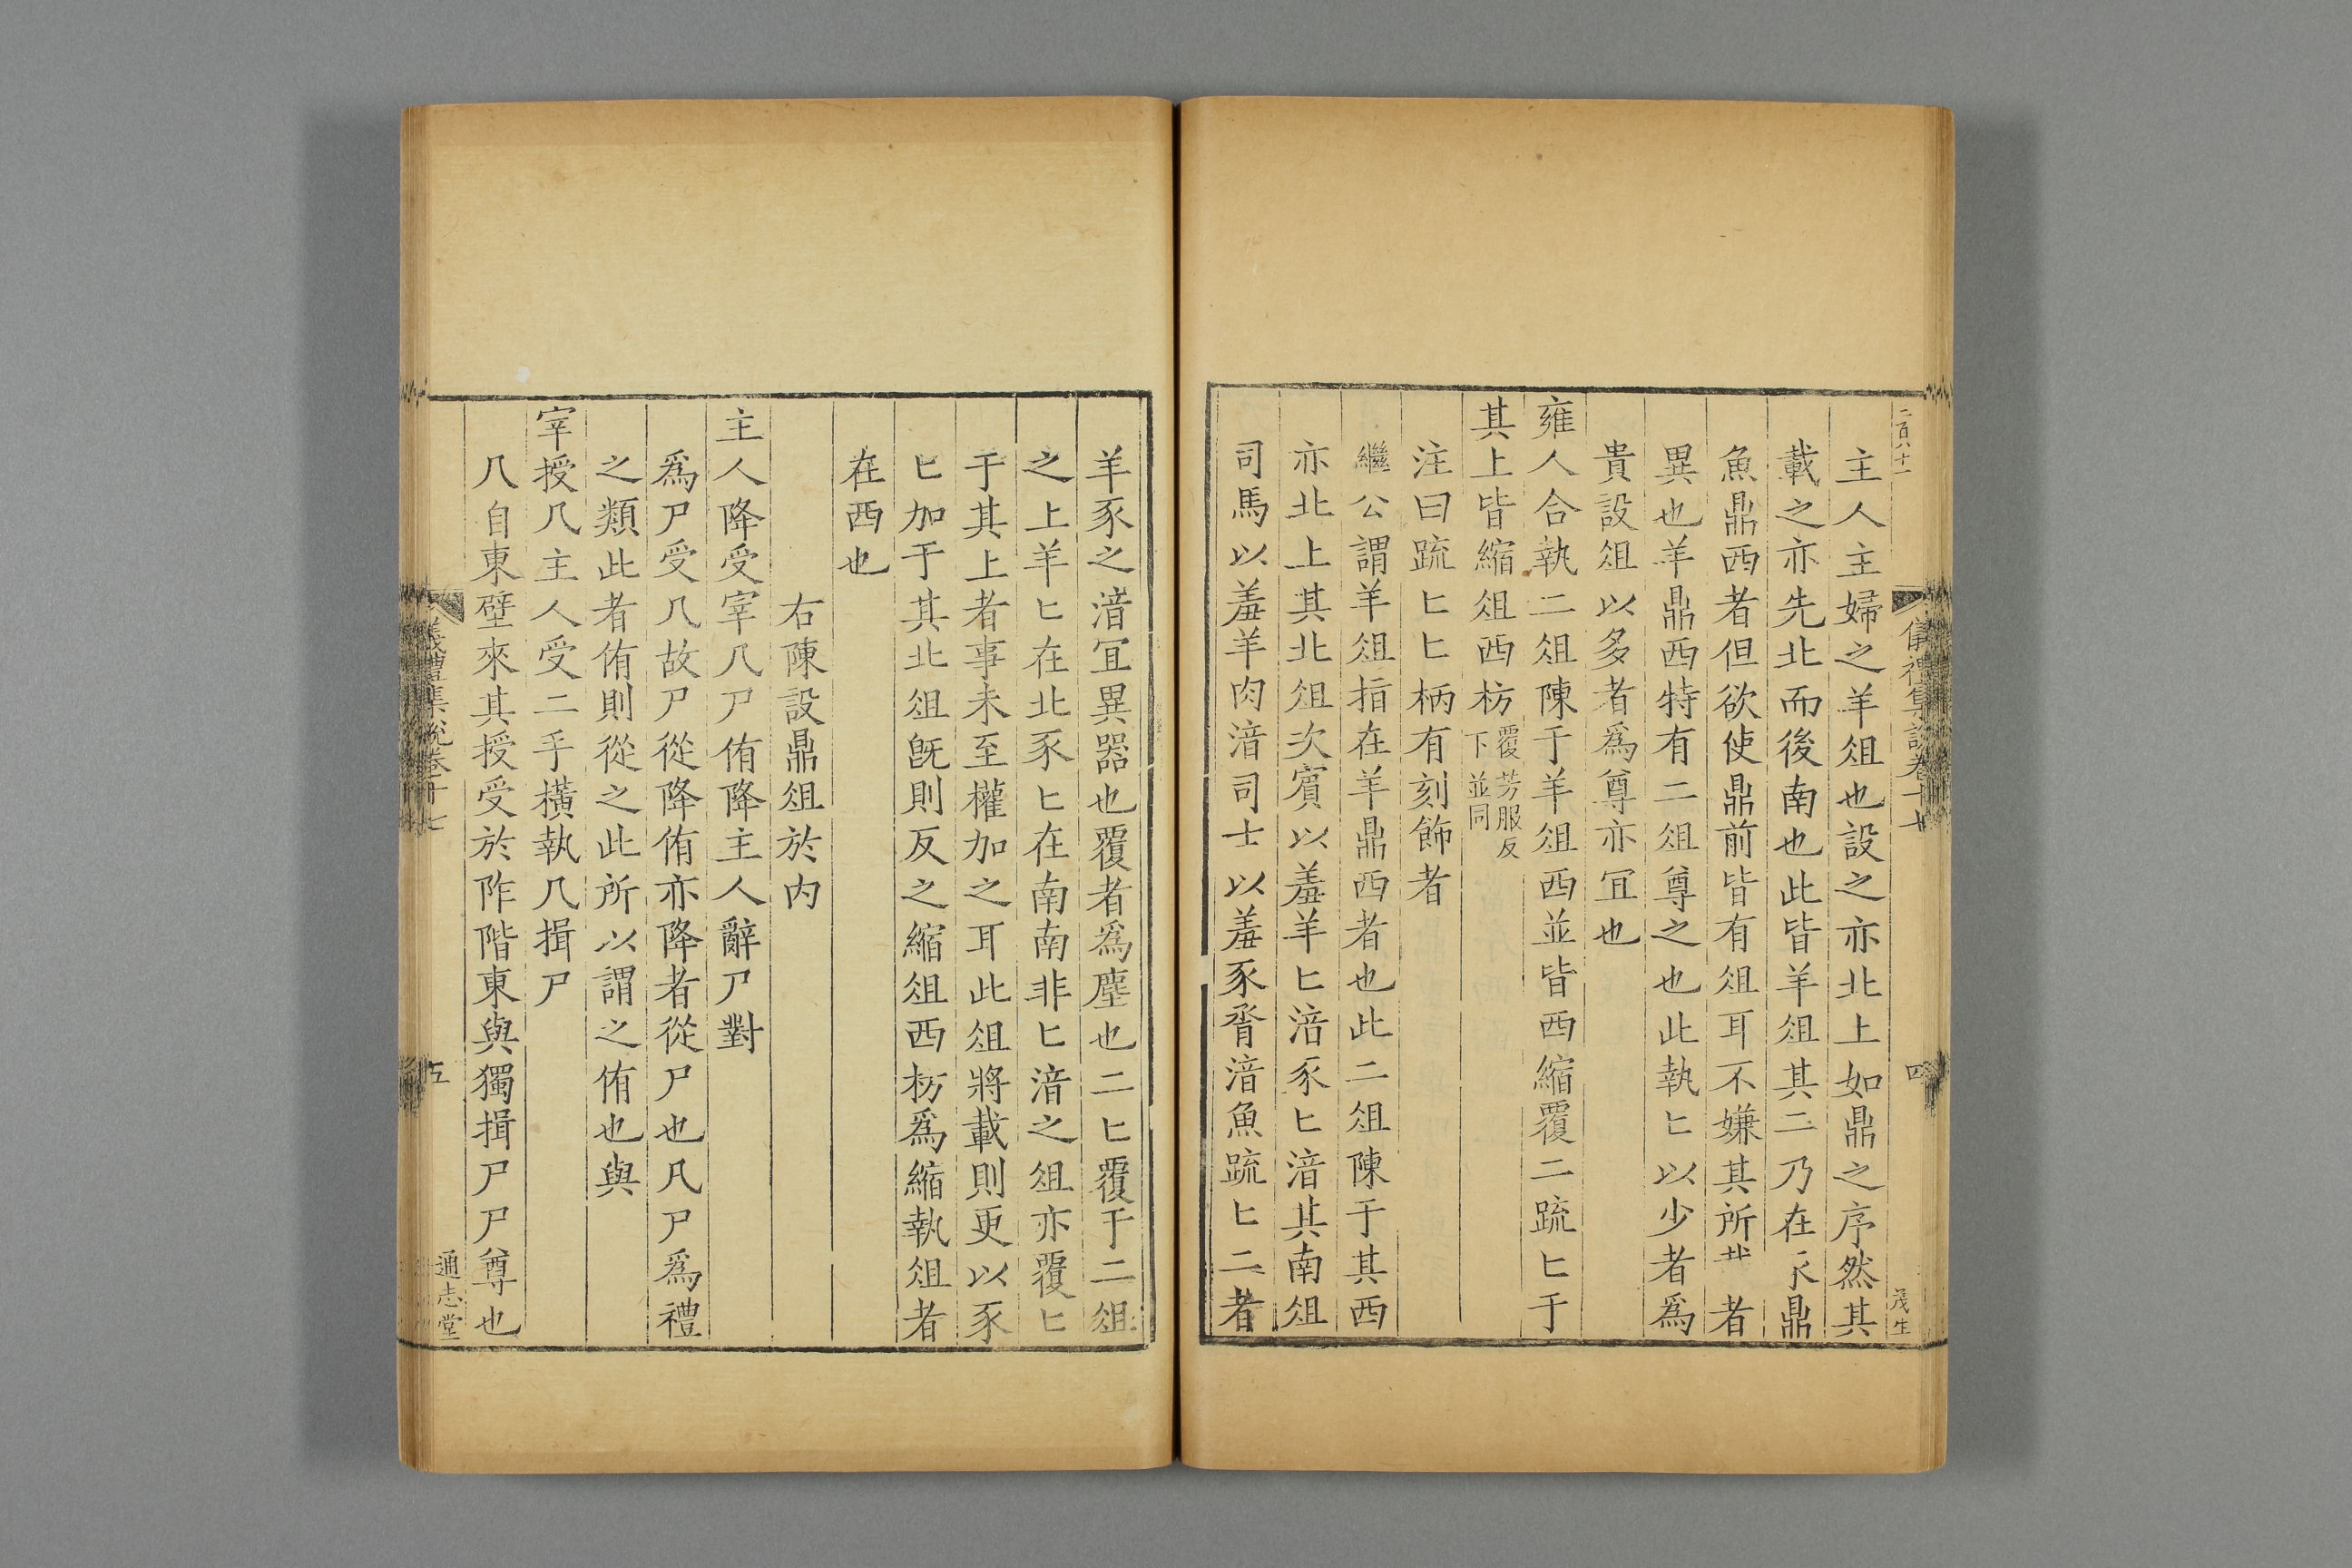 二百八十一
儀禮集說卷十七
四
茂生
主人主婦之羊俎也設之亦北上如鼎之序然其
載之亦先北而後南也此皆羊俎其二乃在豕鼎
魚鼎西者但欲使鼎前皆有俎耳不嫌其所載者
異也羊鼎西特有二俎尊之也此執匕以少者爲
貴設俎以多者爲尊亦冝也
雍人合執二俎陳于羊俎西並皆西縮覆二疏匕于
其上皆縮俎西枋覆芳服反下並同
注曰疏匕匕柄有刻飾者
繼公謂羊俎指在羊鼎西者也此二俎陳于其西
亦北上其北俎次賓以羞羊匕湆豕匕湆其南俎
司馬以羞羊肉湆司士以羞豕脀湆魚疏匕二者
羊豕之湆冝異器也覆者爲塵也二匕覆于二俎
之上羊匕在北豕匕在南南非匕湆之俎亦覆匕
于其上者事未至權加之耳此俎將載則更以豕
匕加于其北俎既則反之縮俎西枋爲縮執俎者
在西也
右陳設鼎俎於内
主人降受宰几尸侑降主人辭尸對
爲尸受几故尸從降侑亦降者從尸也凡尸爲禮
之類此者侑則從之此所以謂之侑也與
宰授几主人受二手橫執几揖尸
几自東壁來其授受於阼階東與獨揖尸尸尊也
儀禮集說卷十七
五
通志堂